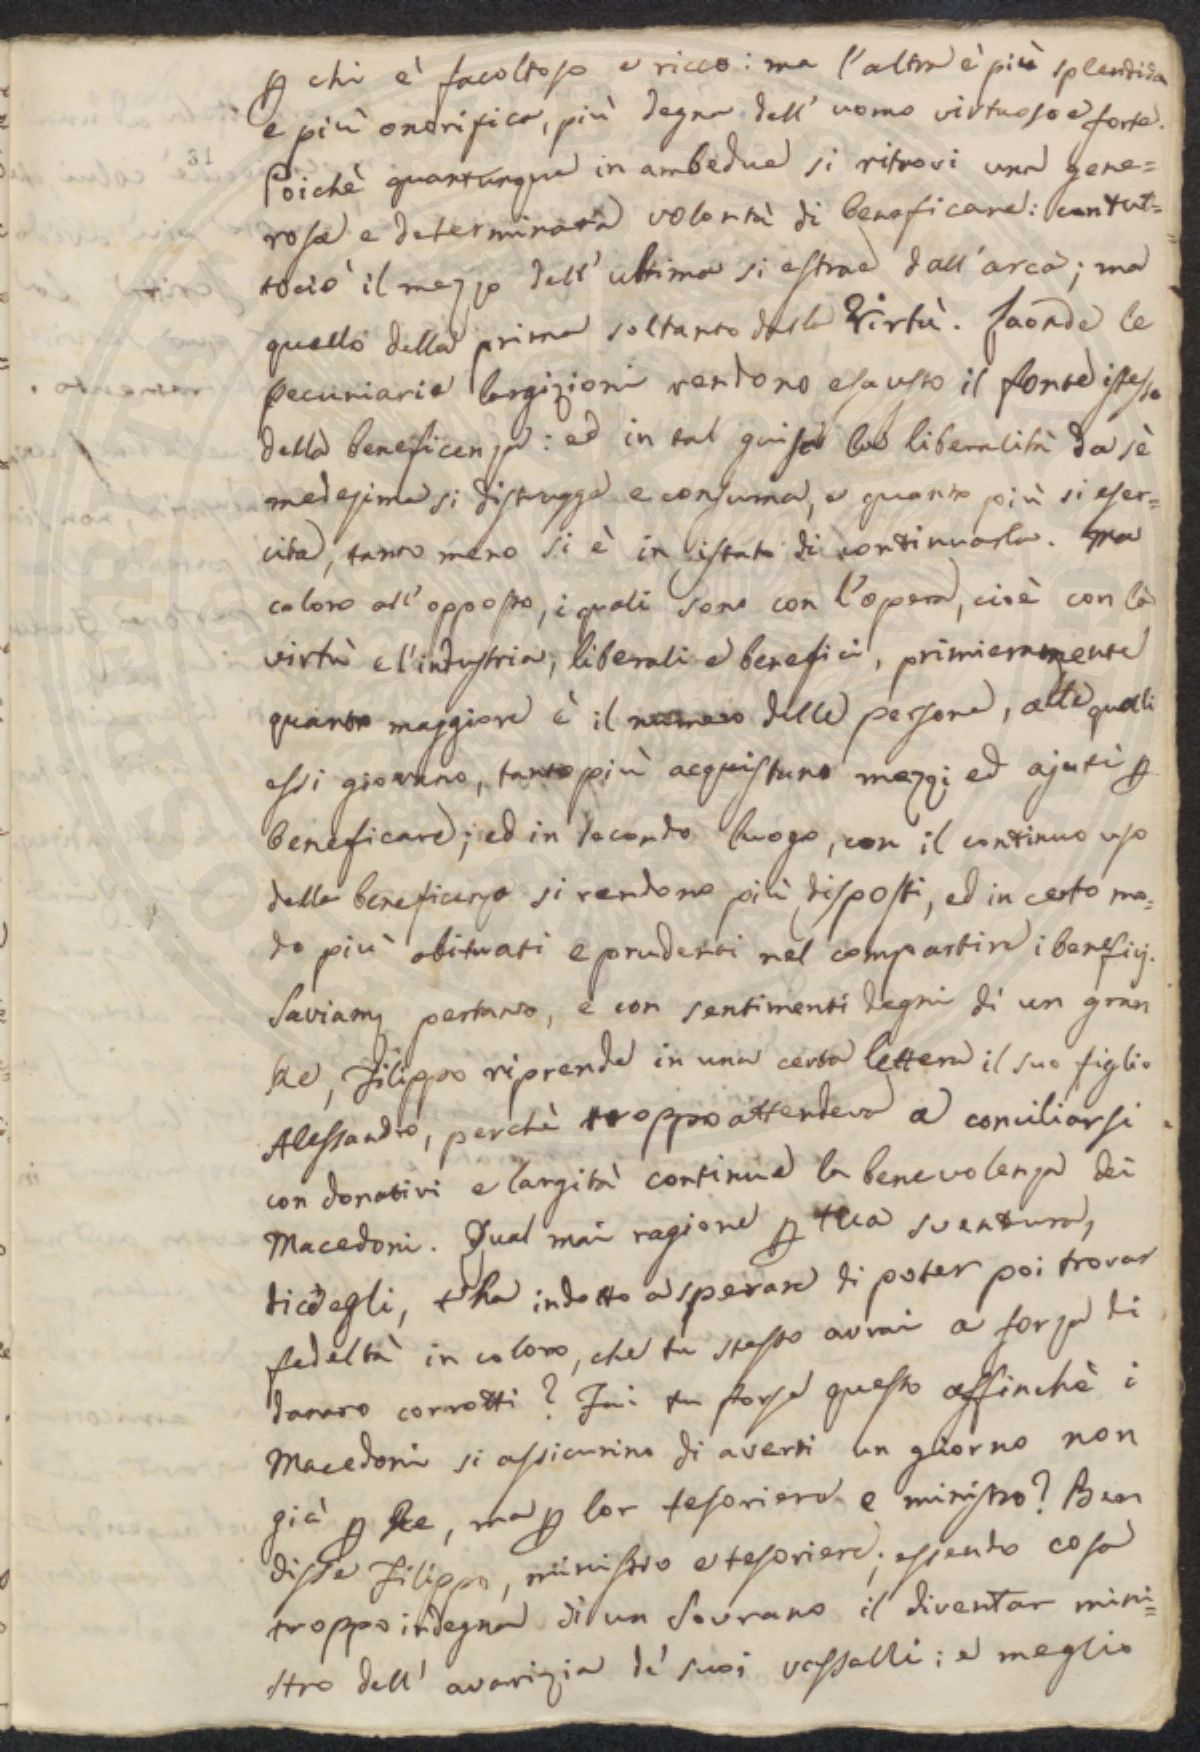 ꝑ chi è facoltoso e ricco: ma l'altra è più splendida
e più onorifica, più degna dell'uomo virtuoso e forte.
31
Poichè quantunque in ambedue si ritrovi una gene=
rosa e determinata volontà di beneficare: contut=
tociò il mezzo dell'ultima si estrae dall'arca; ma
quello della prima soltanto dalla Virtù. Laonde le
pecuniarie largizioni rendono esausto il fonte istesso
della beneficenza: ed in tal guisa la liberalità da sè
medesima si distrugge e consuma, e quanto più si eser=
cita, tanto meno si è in istato di continuarla. Ma
coloro all'opposto, i quali sono con l'opera, cioè con la
virtù e l'industria, liberali e benefici, primieramente
quanto maggiore è il numero delle persone, alle quali
essi giovano, tanto più acquistano mezzi ed ajuti ꝑ
beneficare; ed in secondo luogo, con il continuo uso
della beneficenza si rendono più disposti, ed in certo mo=
do più abituati e prudenti nel compartire i beneficj.
Saviamᵗᵉ pertanto, e con sentimenti degni di un gran
Re, Filippo riprende in una certa lettera il suo figlio
Alessandro, perchè troppo attendeva a conciliarsi
con donativi e largità continue la benevolenza dei
Macedoni. Qual mai ragione ꝑ tua sventura,
dic'egli, t'ha indotto a sperare di poter poi trovar
fedeltà in coloro, che tu stesso avrai a forza di
danaro corrotti? Fai tu forse questo affinchè i
Macedoni si assicurino di averti un giorno non
già ꝑ Re, ma ꝑ lor tesoriere e ministro? Ben
disse Filippo, ministro e tesoriere; essendo cosa
troppo indegna di un Sovrano il diventar mini=
stro dell'avarizia de' suoi vassalli: e meglio